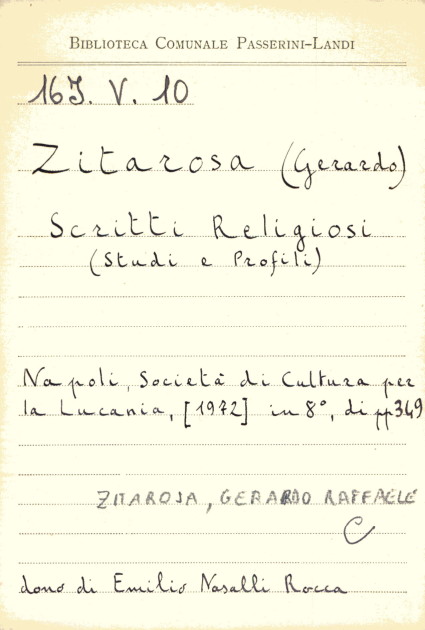 BIBLIOTECA COMUNALE PASSERINI-LANDI
16J. V. 10
Zitarosa (Gerardo)
Scritti Religiosi
(Studi e Profili)
Napoli, Società di Cultura per
la Lucania, [1972] in 8°, di pp 349
ZITAROSA, GERARDO RAFFAELE
C
dono di Emilio Nasalli Rocca